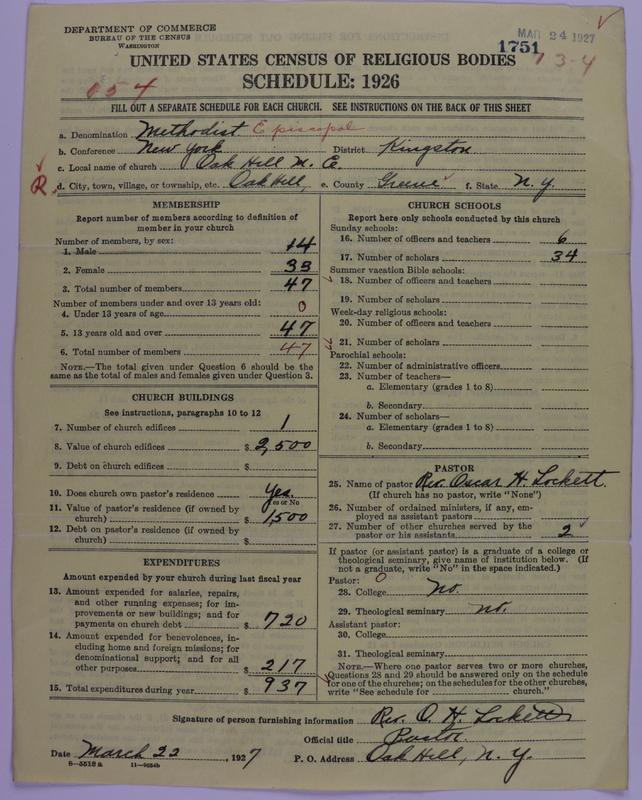 DEPARTMENT OF COMMERCE
BUREAU OF THE CENSUS
WASHINGTON
MAR 24 1927
1751 13-4
UNITED STATES CENSUS OF RELIGIOUS BODIES
SCHEDULE: 1926
054
FILL OUT A SEPARATE SCHEDULE FOR EACH CHURCH. SEE INSTRUCTIONS ON THE BACK OF THIS SHEET
a. Denomination Methodist Episcopal
b. Conference New York District Kingston
c. Local name of church Oak Hill M. E.
R d. City, town, village, or township, etc. Oak Hill, e. County Greene f. State N. Y.
MEMBERSHIP
Report number of members according to definition of
member in your church
Number of members, by sex:
1. Male 14
2. Female 33
3. Total number of members 47
Number of members under and over 13 years old:
4. Under 13 years of age 0
5. 13 years old and over 47
6. Total number of members 47
NOTE.—The total given under Question 6 should be the
same as the total of males and females given under Question 3.
CHURCH BUILDINGS
See instructions, paragraphs 10 to 12
7. Number of church edifices 1
8. Value of church edifices $ 2,500
9. Debt on church edifices $
10. Does church own pastor's residence Yes.
Yes or No
11. Value of pastor's residence (if owned by
church) $ 1,500
12. Debt on pastor's residence (if owned by
church) $
EXPENDITURES
Amount expended by your church during last fiscal year
13. Amount expended for salaries, repairs,
and other running expenses; for im-
provements or new buildings; and for
payments on church debt $ 720
14. Amount expended for benevolences, in-
cluding home and foreign missions; for
denominational support; and for all
other purposes $ 217
15. Total expenditures during year $ 937
CHURCH SCHOOLS
Report here only schools conducted by this church
Sunday schools:
16. Number of officers and teachers 6
17. Number of scholars 34
Summer vacation Bible schools:
18. Number of officers and teachers
19. Number of scholars
Week-day religious schools:
20. Number of officers and teachers
21. Number of scholars
Parochial schools:
22. Number of administrative officers
23. Number of teachers—
a. Elementary (grades 1 to 8)
b. Secondary
24. Number of scholars—
a. Elementary (grades 1 to 8)
b. Secondary
PASTOR
25. Name of pastor Rev. Oscar H. Lockett.
(If church has no pastor, write "None")
26. Number of ordained ministers, if any, em-
ployed as assistant pastors
27. Number of other churches served by the
pastor or his assistants 2
If pastor (or assistant pastor) is a graduate of a college or
theological seminary, give name of institution below. (If
not a graduate, write "No" in the space indicated.)
Pastor: 0
28. College No.
29. Theological seminary No.
Assistant pastor:
30. College
31. Theological seminary
NOTE.—Where one pastor serves two or more churches,
Questions 28 and 29 should be answered only on the schedule
for one of the churches; on the schedules for the other churches,
write "See schedule for church."
Signature of person furnishing information Rev. O. H. Lockett
Official title Pastor
Date March 22, 1927 P. O. Address Oak Hill, N. Y.
8—5518a 11—9054b